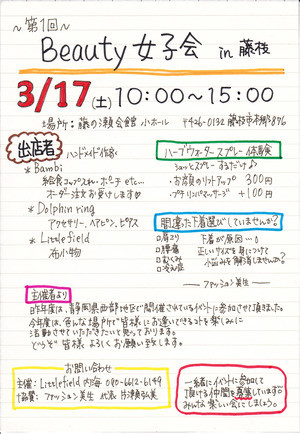 ～第1回～
Beauty女子会 in 藤枝
3/17(土) 10:00～15:00
場所：藤の瀬会館 小ホール 〒426-0132 藤枝市本郷876
出店者
ハンドメイド作家
*Bambi
給食コップ入れ、ポーチ etc...
オーダー注文お受けします
*Dolphin ring
アクセサリー、ヘアピン、ピアス
*Littlefield
布小物
ハーブウォータースプレー体験
シュッとスプレーするだけ♪
・お顔のリフトアップ 300円
・プチリンパマッサージ +100円
間違った下着選びしていませんか?
□肩コリ
□腰痛
□むくみ
□冷え症
下着が原因…。
正しいサイズを身につけて
小悩みを解消しませんか?
ファッション美生
主催者より
昨年度は、静岡県西部地区で開催されているイベントに参加させて頂きました。
今年度は、色んな場所で皆様にお逢いできるコトを楽しみに
活動させていただきたいと思っております。
どうぞ皆様よろしくお願い致します。
お問い合わせ
主催：Littlefield 内海 080-6612-6149
協賛：ファッション美生 代表 片瀬弘美
一緒にイベントに参加して
頂ける仲間を募集しています。
みんなで楽しい会にしましょう。